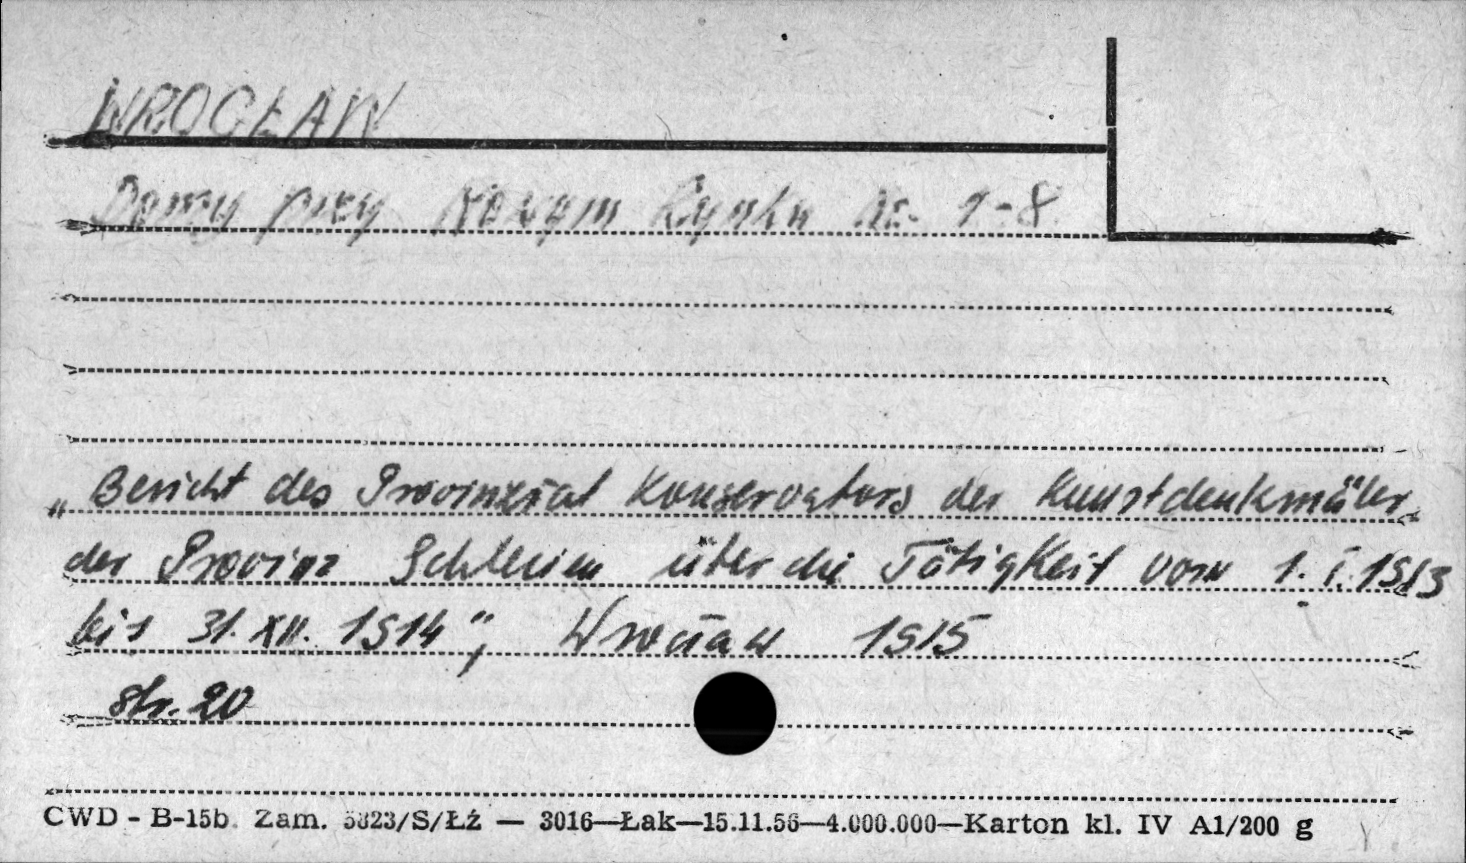 WROCŁAW
Domy przy Nowym Rynku Nr. 1-8
„Bericht des Provinzial Konservators der Kunstdenkmäler
der Provinz Schlesien über die Tätigkeit vom 1. I. 1913
bis 31. XII. 1914”, Wrocław 1915
str. 20
CWD - B-15b. Zam. 5823/S/Łź — 3016—Łak—15.11.56—4.000.000—Karton kl. IV A1/200 g